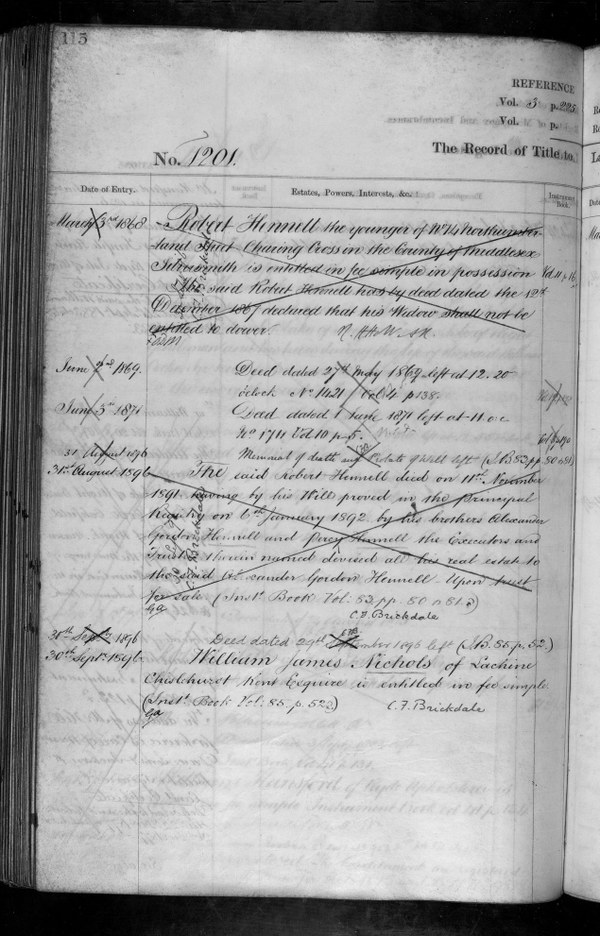 115
REFERENCE
Vol. 5 p. 225
Vol. p.
No. 1201.
The Record of Title to
Date of Entry.
Estates, Powers, Interests, &c.
Instrument Book.
March 3rd 1868
Robert Hennell the younger of No 14 Northumber-
land Street Charing Cross in the County of Middlesex
Silversmith is entitled in fee simple in possession
Vol. 11 p 16
The said Robert Hennell has by deed dated the 12th
December 1867 declared that his Widow shall not be
entitled to dower.
June 2nd 1869.
Deed dated 27th May 1869 left at 12.20
o'clock No 1421 Vol 4 p 138.
June 3rd 1871
Deed dated 1 June 1871 left at 11 o.c
No 1711 Vol 10 p 5.
31 August 1896
Memorial of death and Probate of Will left (I.B. 53 pp 80 & 81)
31st August 1896
The said Robert Hennell died on 11th November
1891 having by his Will proved in the principal
Registry on 6th January 1892 by his brothers Alexander
Gordon Hennell and Percy Hennell the Executors and
Trustees therein named devised all his real estate to
the said Alexander Gordon Hennell Upon trust
for sale (Inst. Book Vol: 53. pp. 80 & 81.)
C.F. Brickdale
30th Septr 1896
Deed dated 29th 1896 left (I.B. 55. p. 52.)
30th Septr. 1896.
William James Nichols of Lachine
Chislehurst Kent Esquire is entitled in fee simple
(Inst. Book Vol: 55. p. 522)
C.F. Brickdale